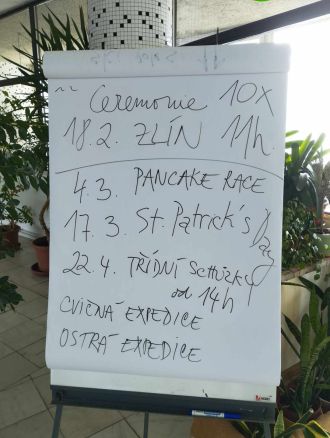 ~ Ceremonie 10x
18.2. ZLÍN 11h.
4.3. PANCAKE RACE
17.3. St. Patrick's Day
22.4. TŘÍDNÍ SCHŮZKY
od 14h
CVIČNÁ EXPEDICE
OSTRÁ EXPEDICE